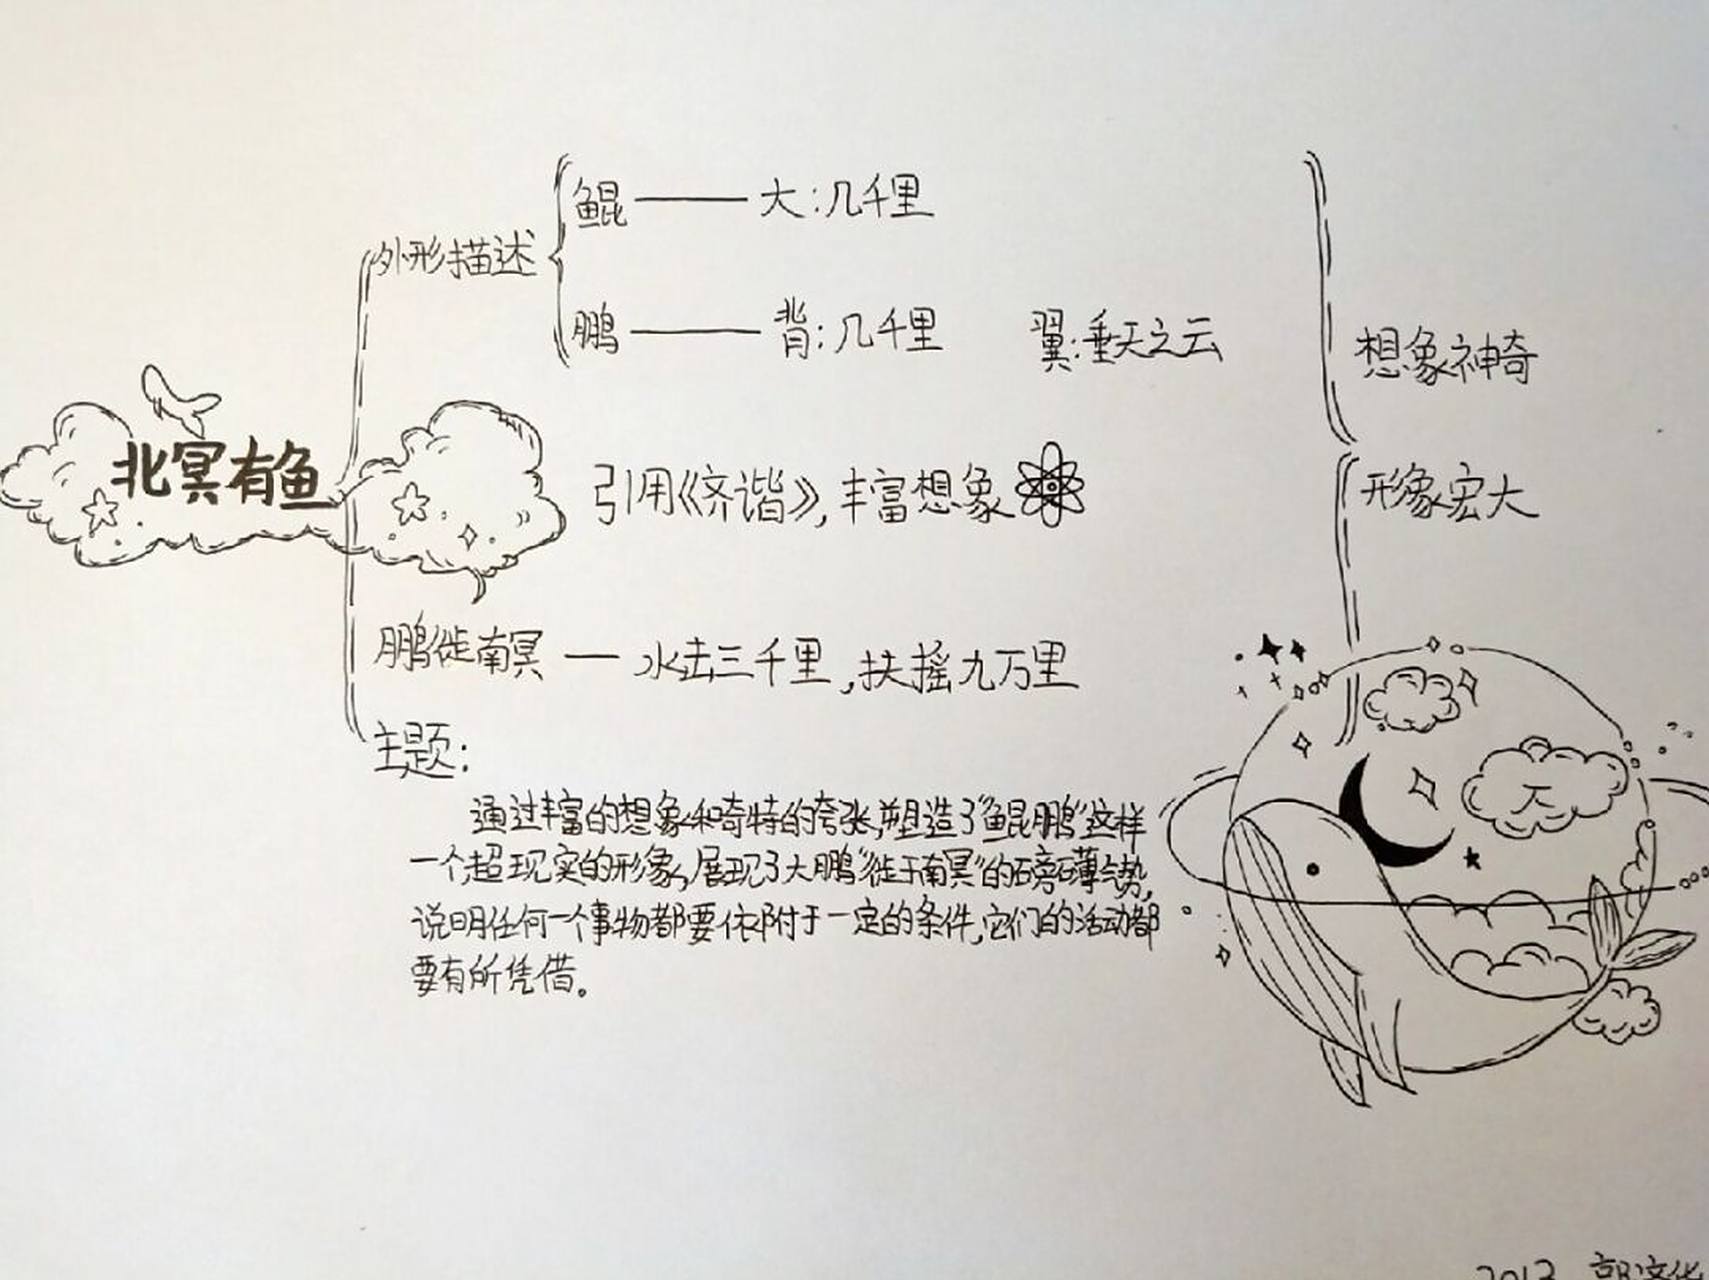 鲲 —— 大:几千里
外形描述
鹏 —— 背:几千里 翼:垂天之云
想象神奇
北冥有鱼
引用《济谐》,丰富想象
形象宏大
鹏徙南冥 — 水击三千里,扶摇九万里
主题:
通过丰富的想象和奇特的夸张,塑造了“鲲鹏”这样
一个超现实的形象,展现了大鹏“徙于南冥”的磅礴气势,
说明任何一个事物都要依附于一定的条件,它们的活动都
要有所凭借。
2013